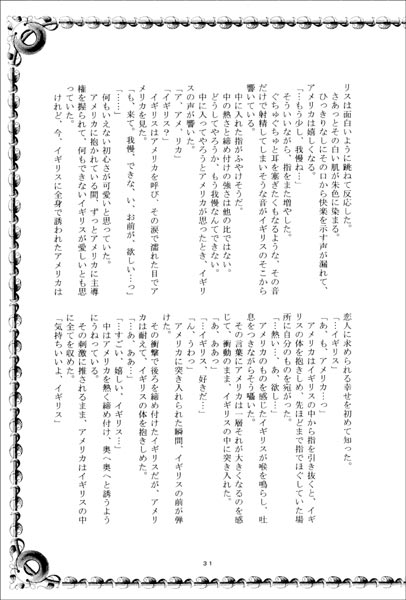 リスは面白いように跳ねて反応した。
さあっとその白い肌が朱色に染まる。
ひっきりなしにその口から快楽を示す声が漏れて、
アメリカは嬉しくなる。
「…もう少し、我慢ね…」
そういいながら、指をまた増やした。
ぐちゅぐちゅと耳を塞ぎたくもなるような、その音
だけで射精してしまいそうな音がイギリスのそこから
響いている。
中に入れた指がふやけそうだ。
中の熱さと締め付けの強さは他の比ではない。
どうしてやろうか、もう我慢なんてできない。
中に入ってやろうとアメリカが思ったとき、イギリ
スの声が響いた。
「ア、アメ、リカ」
「イギリス？」
イギリスはアメリカを呼び、その涙で濡れた目でア
メリカを見た。
「も、来て。我慢、できな、い、お前が、欲しい…っ」
「……」
何もいえない初心さが可愛いと思っていた。
アメリカに抱かれている間、ずっとアメリカに主導
権を握られて、何もできないイギリスが愛しいとも思
っていた。
けれど、今、イギリスに全身で誘われたアメリカは
恋人に求められる幸せを初めて知った。
「あ、アメリカ…っ」
アメリカはイギリスの中から指を引き抜くと、イギ
リスの体を抱きしめ、先ほどまで指でほぐしていた場
所に自分のものを宛がった。
「…熱い…、あ、欲し…」
アメリカのものを感じたイギリスが喉を鳴らし、吐
息をつきながらそう囁いた。
その言葉にアメリカは一層それが大きくなるのを感
じて、衝動のまま、イギリスの中に突き入れた。
「あ、ああっ」
「…イギリス、好きだ…」
「ん、うわっ」
アメリカに突き入れられた瞬間、イギリスの前が弾
けた。
その衝撃で後ろを締め付けたイギリスだが、アメリ
カは耐えて、イギリスの体を抱きしめた。
「…あ、ああ…」
「…すごい、嬉しい、イギリス…」
中はアメリカを熱く締め付け、奥へ奥へと誘うよう
にうねっている。
その刺激に推されるまま、アメリカはイギリスの中
に全てを収めた。
「気持ちいいよ、イギリス」
31